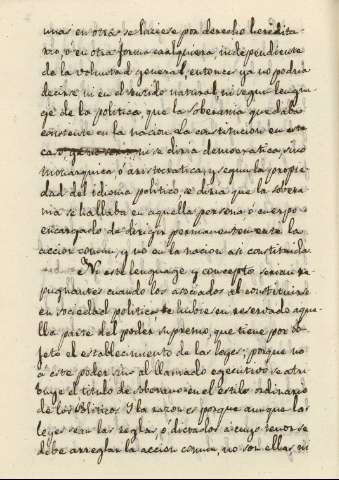 unas en otras se hiciese por derecho heredita-
rio, ó en otra forma cualquiera, independiente
de la voluntad general, entonces ya no podria
decirse ni en el sentido natural, ni segun lengua-
je de la politica, que la soberania quedaba
consistente en la nacion. La constitucion en este
caso ni se diria democratica, sino
Monarquica ó aristocratica, y segun la propie-
dad del idioma politico se diria que la sobera-
nia se hallaba en aquella persona ó cuerpo
encargado de dirigir permanentemente la
accion comun, y no en la nacion asi constituida.
Ni este lenguage y concepto serian re-
pugnantes cuando los asociados al constituirse
en sociedad politica, se hubiesen reservado aque-
lla parte del poder supremo, que tiene por ob-
jeto el establecimiento de las leyes; porque no
á este poder sino al llamado egecutivo se atri-
buye el titulo de soberano en el estilo ordinario
de los Politicos. Y la razon es porque aunque las
leyes sean las reglas, ó dictados á cuyo tenor se
debe arreglar la accion comun, no son ellas, ni